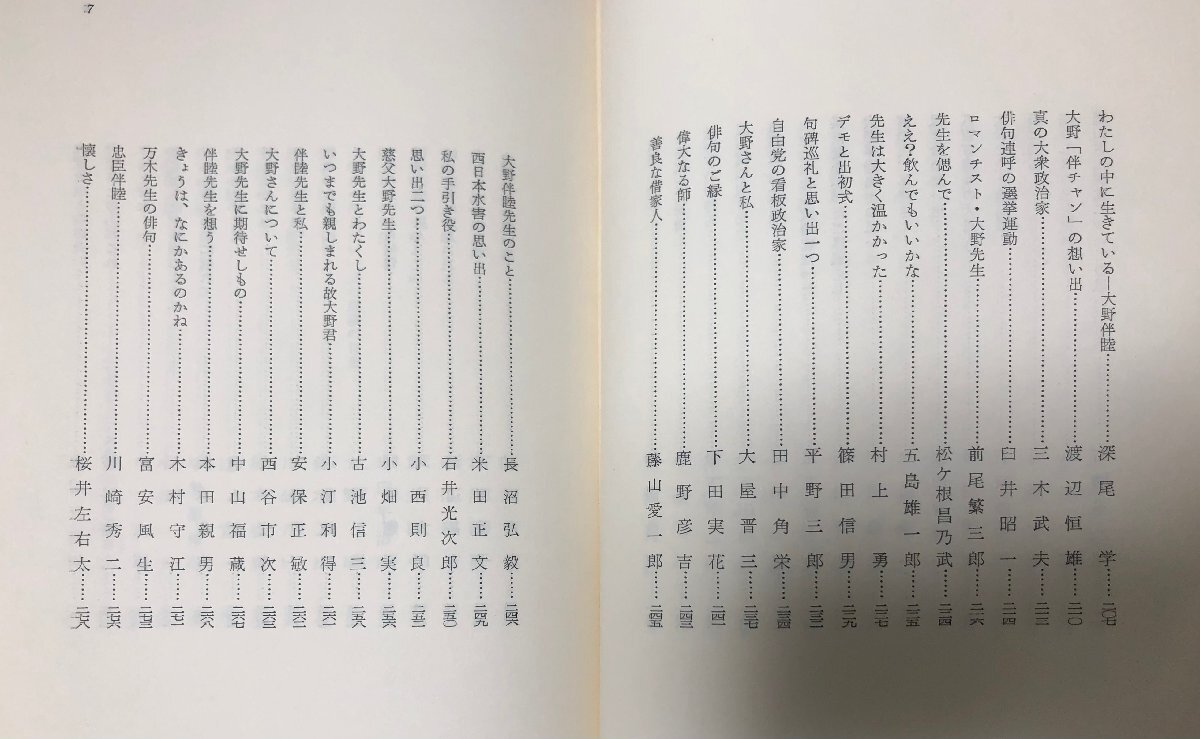 わたしの中に生きている―大野伴睦……深尾学……二〇七
大野「伴チャン」の想い出……渡辺恒雄……二一〇
真の大衆政治家……三木武夫……二一三
俳句連呼の選挙運動……臼井昭一……二一四
ロマンチスト・大野先生……前尾繁三郎……二一六
先生を偲んで……松ケ根昌乃武……二二四
ええ?飲んでもいいかな……五島雄一郎……二二五
先生は大きく温かかった……村上勇……二二七
デモと出初式……篠田信男……二二九
句碑巡礼と思い出一つ……平野三郎……二三二
自由党の看板政治家……田中角栄……二三四
大野さんと私……大屋晋三……二三七
俳句のご縁……下田実花……二四一
偉大なる師……鹿野彦吉……二四三
善良な借家人……藤山愛一郎……二四五
大野伴睦先生のこと……長沼弘毅……二四六
西日本水害の思い出……米田正文……二四九
私の手引き役……石井光次郎……二五〇
思い出二つ……小西則良……二五二
慈父大野先生……小畑実……二五六
大野先生とわたくし……古池信三……二五八
いつまでも親しまれる故大野君……小汀利得……二六一
伴睦先生と私……安保正敏……二六二
大野さんについて……西谷市次……二六三
大野先生に期待せしもの……中山福蔵……二六七
伴睦先生を想う……本田親男……二六八
きょうは、なにかあるのかね……木村守江……二七一
万木先生の俳句……富安風生……二七三
忠臣伴睦……川崎秀二……二七六
懐しさ……桜井左右太……二七八
7